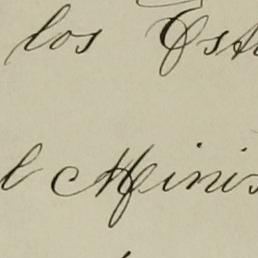 los Esta
l Minis